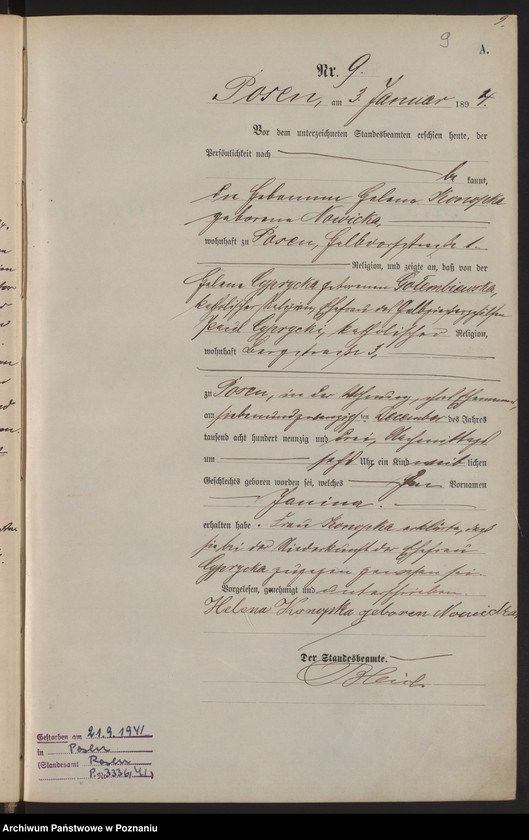 9.
9
A.
Nr. 9.
Posen, am 3. Januar 1894.
Vor dem unterzeichneten Standesbeamten erschien heute, der
Persönlichkeit nach
be kannt,
die Hebamme Helena Konopka
geborene Nowicka,
wohnhaft zu Posen, Halbdorfstraße
Religion, und zeigte an, daß von der
Helena Cyprycka geborenen Gołembiewska,
katholischer Religion, Ehefrau des
Paul Cyprycki, katholischer Religion,
wohnhaft Bergstraße 3,
zu Posen, in der Wohnung,
am siebenundzwanzigsten December des Jahres
tausend acht hundert neunzig und drei, Nachmittags
um Uhr ein Kind weib lichen
Geschlechts geboren worden sei, welches den Vornamen
Janina.
erhalten habe. Frau Konopka erklärte, daß
sie bei der Niederkunft der Ehefrau
Cyprycka zugegen gewesen sei.
Vorgelesen, genehmigt und unterschrieben.
Helena Konopka geboren Nowicka
Der Standesbeamte.
Gestorben am 21.9.1941
in Posen
(Standesamt Posen
P. Nr. 3336/41)
Archiwum Państwowe w Poznaniu